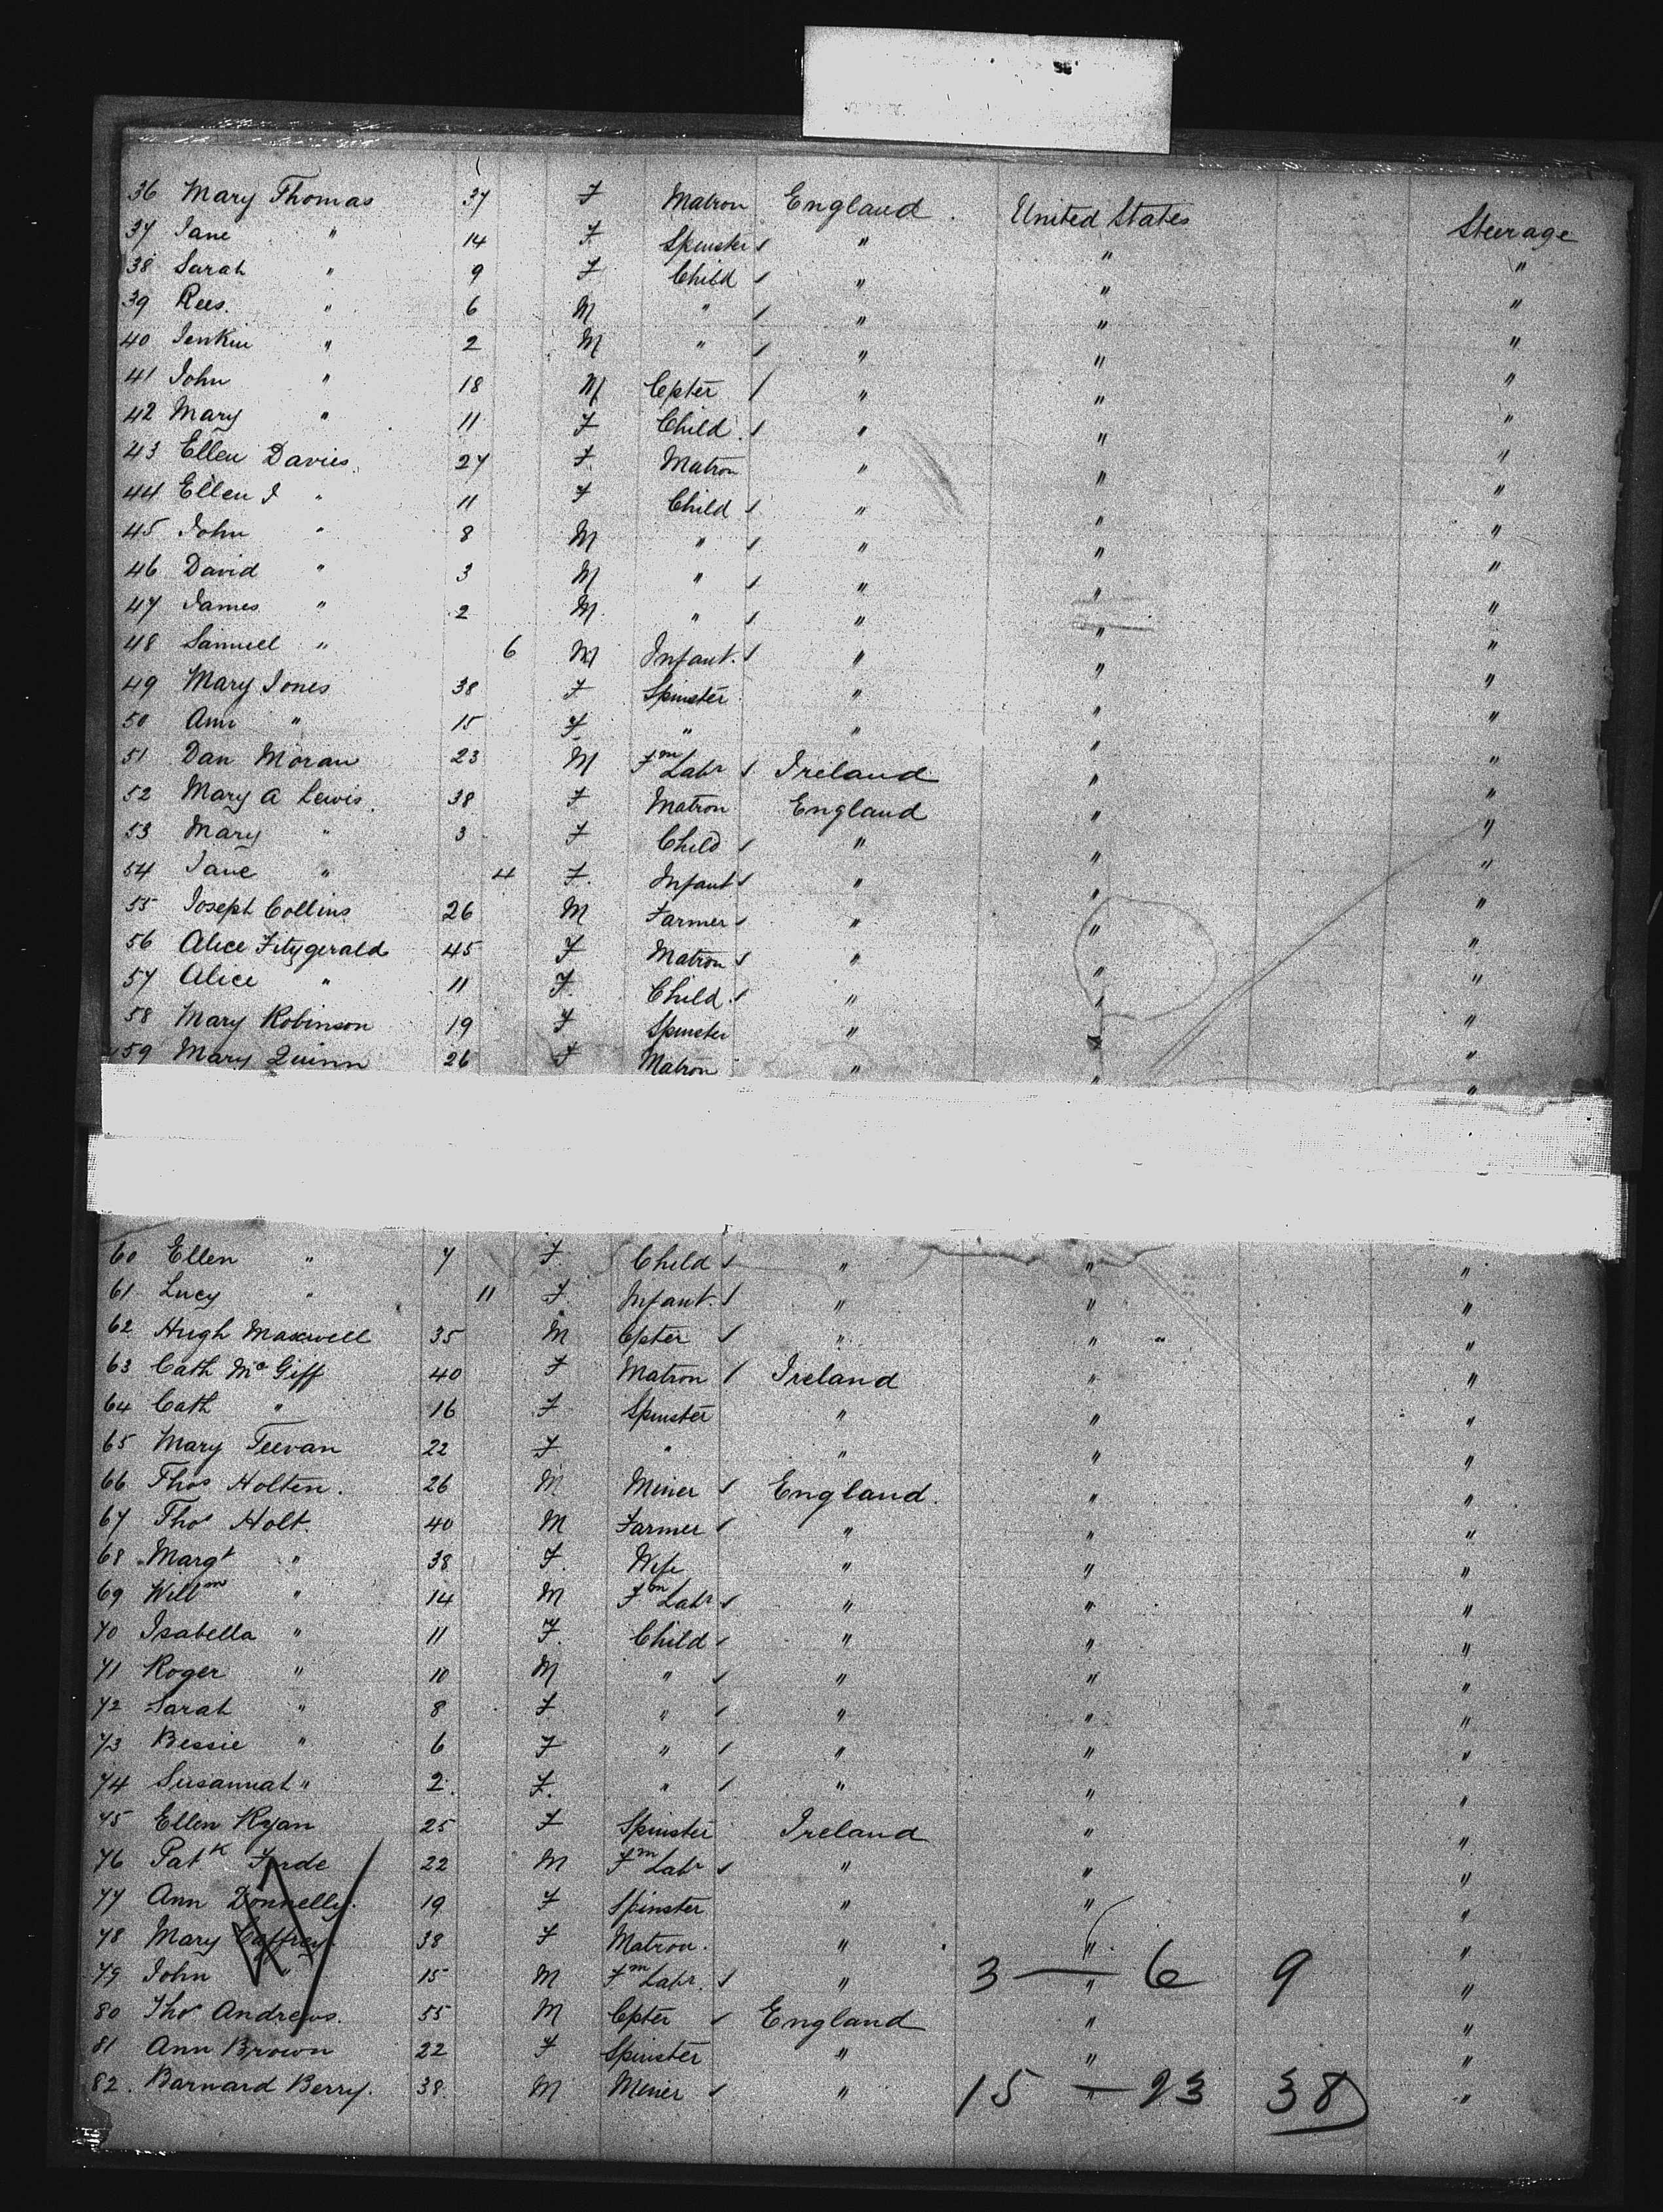 36 Mary Thomas 37 F Matron England United States Steerage
37 Jane " 14 F Spinster " " "
38 Sarah " 9 F Child " " "
39 Rees " 6 M " " " "
40 Jenkin " 2 M " " " "
41 John " 18 M Cpter " " "
42 Mary " 11 F Child " " "
43 Ellen Davies 27 F Matron " " "
44 Ellen J " 11 F Child " " "
45 John " 8 M " " " "
46 David " 3 M " " " "
47 James " 2 M " " " "
48 Samuel " 6 M Infant " " "
49 Mary Jones 38 F Spinster " " "
50 Ann " 15 F " " " "
51 Dan Moran 23 M Fm Labr Ireland " "
52 Mary A Lewis 38 F Matron England " "
53 Mary " 3 F Child " " "
54 Jane " 4 F Infant " " "
55 Joseph Collins 26 M Farmer " " "
56 Alice Fitzgerald 45 F Matron " " "
57 Alice " 11 F Child " " "
58 Mary Robinson 19 F Spinster " " "
59 Mary Quinn 26 F Matron " " "
60 Ellen " 7 F Child " " "
61 Lucy " 11 F Infant " " "
62 Hugh Maxwell 35 M Cpter " " "
63 Cath McGiff 40 F Matron Ireland " "
64 Cath " 16 F Spinster " " "
65 Mary Teevan 22 F " " " "
66 Thos Holten 26 M Miner England " "
67 Thos Holt 40 M Farmer " " "
68 Margt " 38 F Wife " " "
69 Willm " 14 M Fm Labr " " "
70 Isabella " 11 F Child " " "
71 Roger " 10 M " " " "
72 Sarah " 8 F " " " "
73 Bessie " 6 F " " " "
74 Susannah " 2 F " " " "
75 Ellen Ryan 25 F Spinster Ireland " "
76 Patk 22 M Fm Labr " " "
77 Ann Donnelly 19 F Spinster " " "
78 Mary Caffrey 38 F Matron " " "
79 John " 15 M Fm Labr " " "
3 — 6 9
80 Thos Andrews 55 M Cpter England " "
81 Ann Brown 22 F Spinster " " "
82 Barnard Berry 38 M Miner " " "
15 — 23 38